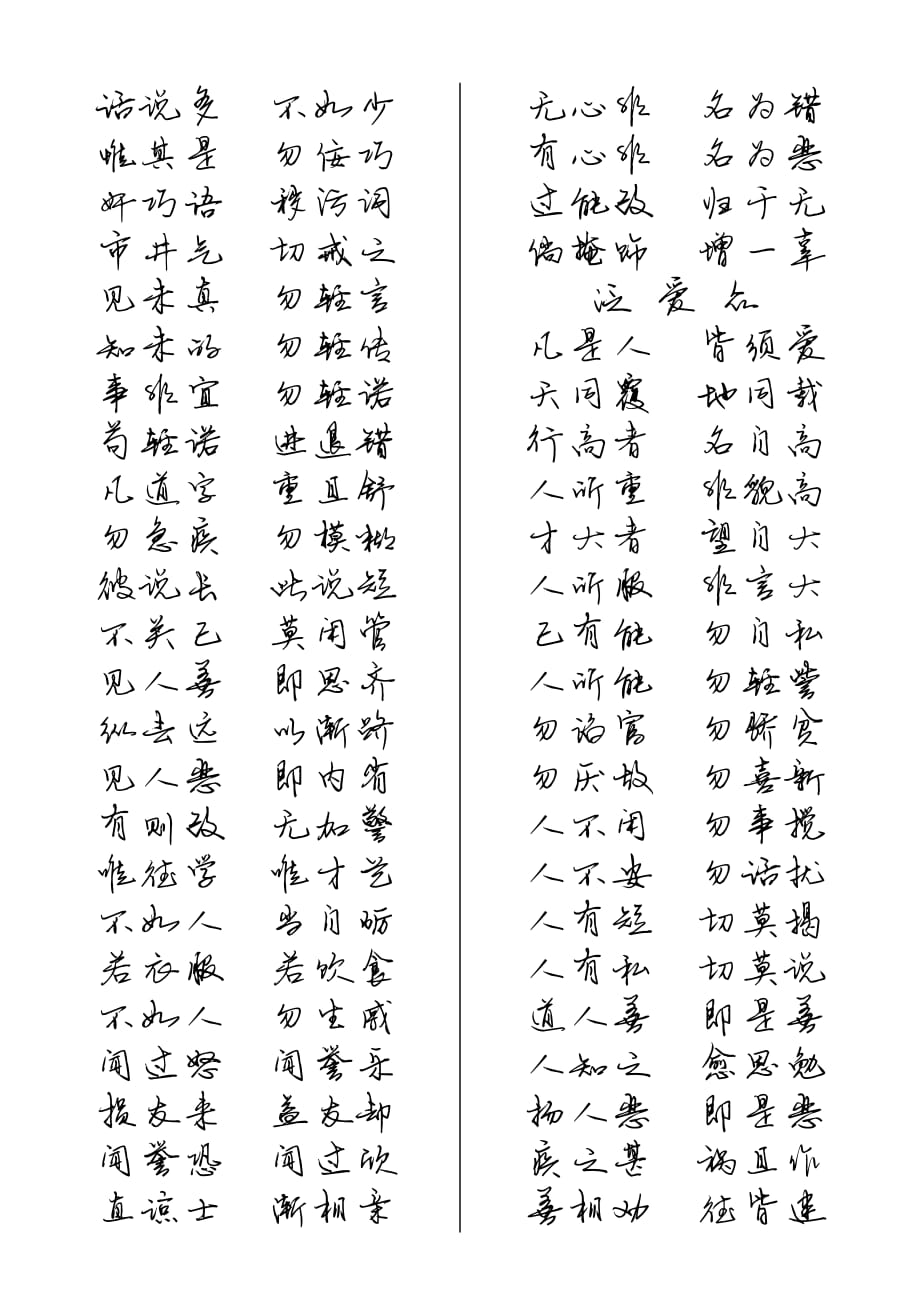 话说多 不如少
唯其是 勿佞巧
奸巧语 秽污词
市井气 切戒之
见未真 勿轻言
知未的 勿轻传
事非宜 勿轻诺
苟轻诺 进退错
凡道字 重且舒
勿急疾 勿模糊
彼说长 此说短
不关己 莫闲管
见人善 即思齐
纵去远 以渐跻
见人恶 即内省
有则改 无加警
唯德学 唯才艺
不如人 当自砺
若衣服 若饮食
不如人 勿生戚
闻过怒 闻誉乐
损友来 益友却
闻誉恐 闻过欣
直谅士 渐相亲
无心非 名为错
有心非 名为恶
过能改 归于无
倘掩饰 增一辜
泛爱众
凡是人 皆须爱
天同覆 地同载
行高者 名自高
人所重 非貌高
才大者 望自大
人所服 非言大
己有能 勿自私
人所能 勿轻訾
勿谄富 勿骄贫
勿厌故 勿喜新
人不闲 勿事搅
人不安 勿话扰
人有短 切莫揭
人有私 切莫说
道人善 即是善
人知之 愈思勉
扬人恶 即是恶
疾之甚 祸且作
善相劝 德皆建